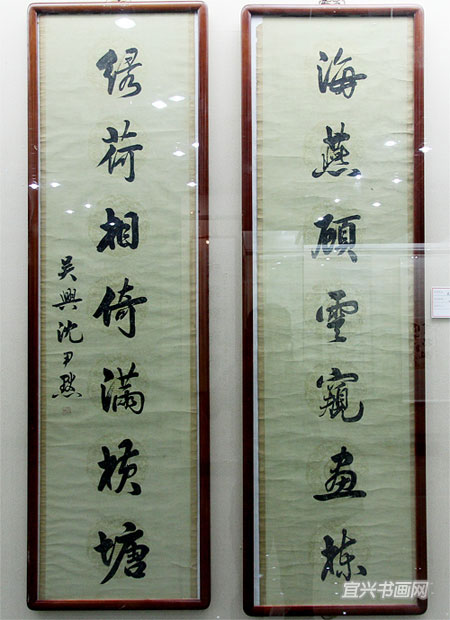 海燕顧雲窺畫棟
綠荷相倚滿横塘
吳興沈尹默
宜兴书画网